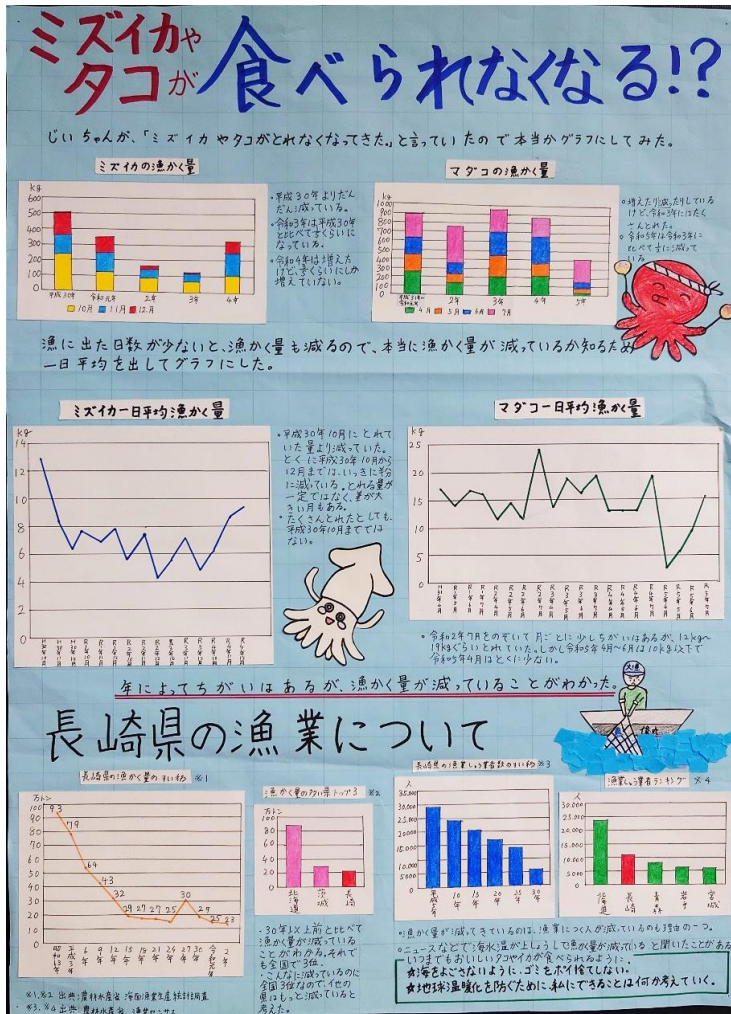 ミズイカや
タコが食べられなくなる!?
じいちゃんが、「ミズイカやタコがとれなくなってきた。」と言っていたので本当かグラフにしてみた。
ミズイカの漁かく量
kg
600
500
400
300
200
100
0
平成30年 令和元年 2年 3年 4年
10月 11月 12月
・平成30年よりだんだん減っている。
・令和3年は平成30年と比べて
になっている。
・令和4年は増えたけど、
増えていない。
マダコの漁かく量
kg
1000
900
800
700
600
500
400
300
200
100
0
2年 3年 4年 5年
4月 5月 6月 7月
○増えたり減ったりしている
けど、令和3年にはたく
さんとれた。
○令和5年は令和3年に
比べて
減って
いる
漁に出た日数が少ないと、漁かく量も減るので、本当に漁かく量が減っているか知るため
一日平均を出してグラフにした。
ミズイカ一日平均漁かく量
kg
14
12
10
8
6
4
2
0
・平成30年10月にとれて
いた量より減っていた。
とくに平成30年10月から
12月までは、いっきに半分
に減っている。とれる量が
一定ではなく、差が大
きい月もある。
・たくさんとれたとしても、
平成30年10月までではない。
マダコ一日平均漁かく量
kg
25
20
15
10
5
0
・令和2年7月をのぞいて月ごとに少しちがいはあるが、12kg〜
19kgぐらいとれていた。しかし令和5年4月〜6月は10kg以下で
令和5年4月はとくに少ない。
年によってちがいはあるが、漁かく量が減っていることがわかった。
大漁
長崎県の漁業について
長崎県の漁かく量のすい移 ※1
万トン
100
90
80
70
60
50
40
30
20
10
0
93
79
54
43
32
29 27 27 25 30 29 25 23
平成3年 6年 9年 12年 15年 18年 21年 24年 27年 30年 令和元年 2年
漁かく量の多い県トップ3 ※2
万トン
100
80
60
40
20
0
北海道 茨城 長崎
・30年以上前と比べて
漁かく量が減っている
ことがわかる。それで
も全国で3位。
・こんなに減っているのに
全国3位なので、他の
県はもっと減っていると
考えた。
長崎県の漁業しゅう業者数のすい移 ※3
人
35,000
30,000
25,000
20,000
15,000
10,000
5000
0
平成5年 10年 15年 20年 25年 30年
漁業しゅう業者ランキング ※4
人
30,000
25,000
20,000
15,000
10,000
5,000
0
北海道 長崎 青森 岩手 宮城
○漁かく量が減ってきているのは、漁業につく人が減っているのも理由の一つ。
○ニュースなどで「海水温が上しょうして魚かく量が減っている」と聞いたことがある
いつまでもおいしいタコやイカが食べられるように、
☆海をよごさないように、ゴミをポイ捨てしない。
☆地球温暖化を防ぐために、私にできることは何か考えていく。
※1,※2 出典:農林水産省 海面漁業生産統計調査
※3,※4 出典:農林水産省 漁業センサス